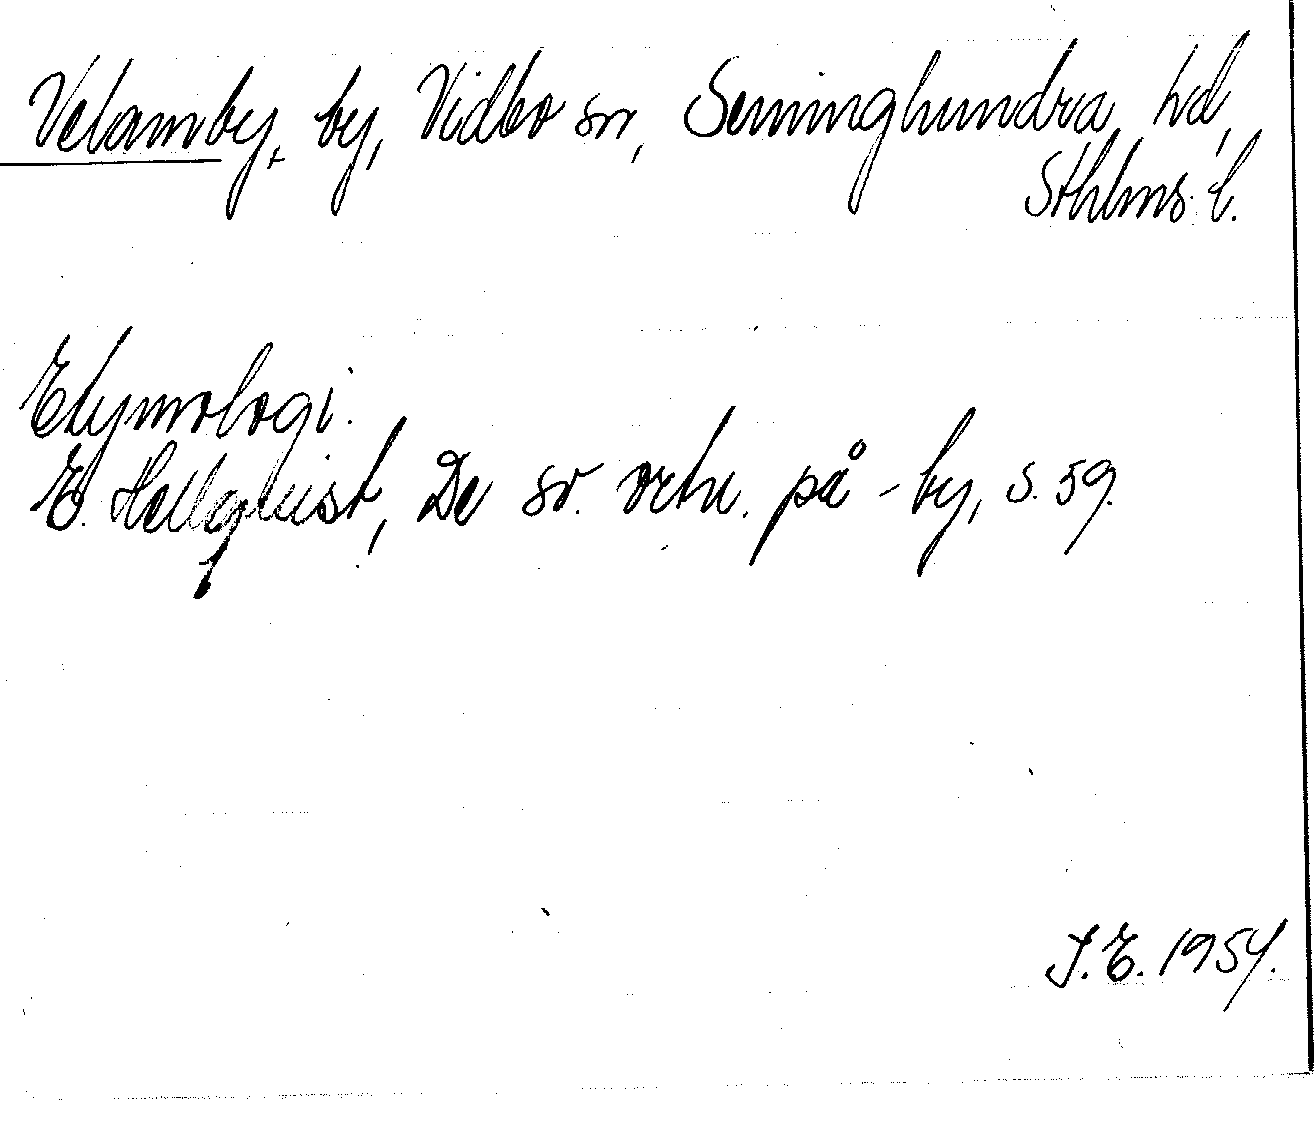 Velamby, by, Vidbo sn, Seminghundra hd,
Sthlms l.
Etymologi.
E. Hellquist, De sv. ortn. på -by, s. 59.
J. E. 1954.